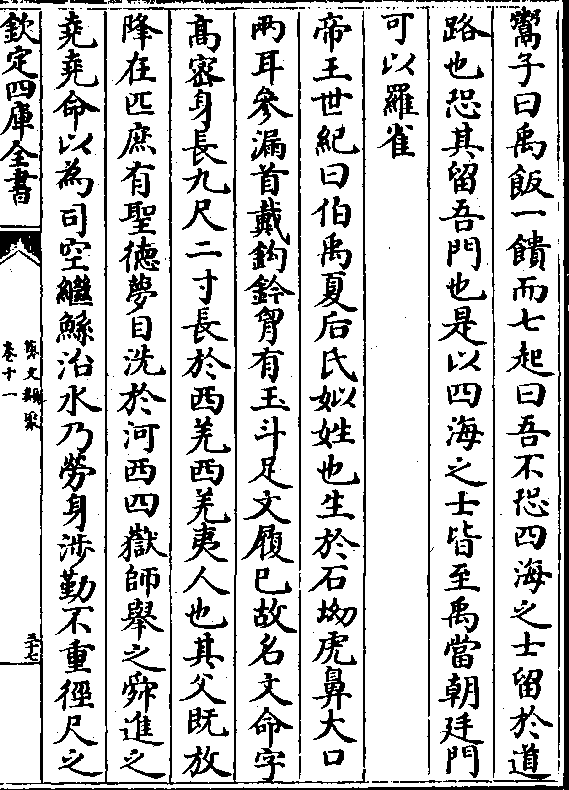 鬻子曰禹飯一饋而七起曰吾不恐四海之士留於道
路也恐其留吾門也是以四海之士皆至禹當朝廷門
可以羅雀
帝王世紀曰伯禹夏后氏姒姓也生於石坳虎鼻大口
兩耳參漏首戴鈎鈐胷有玉斗足文履巳故名文命字
髙宻身長九尺二寸長於西羌西羌夷人也其父既放
降在匹庶有聖徳夢自洗於河西四嶽師舉之舜進之
堯堯命以為司空繼鯀治水乃勞身涉勤不重徑尺之
欽定四庫全書
藝文類聚
卷十一
五十七